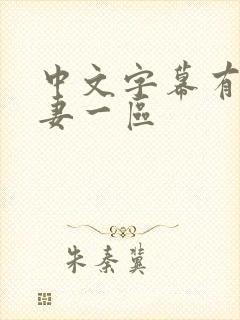 中文字幕有
妻一區
朱秦冀